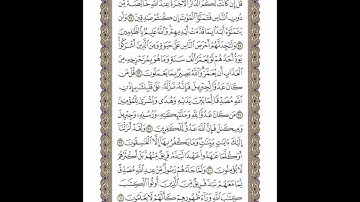 قُلْ إِن كَانَتْ لَكُمُ ٱلدَّارُ ٱلْءَاخِرَةُ عِندَ ٱللَّهِ خَالِصَةً مِّن
دُونِ ٱلنَّاسِ فَتَمَنَّوُا۟ ٱلْمَوْتَ إِن كُنتُمْ صَٰدِقِينَ ٩٤ وَلَن
يَتَمَنَّوْهُ أَبَدًۢا بِمَا قَدَّمَتْ أَيْدِيهِمْ وَٱللَّهُ عَلِيمٌۢ بِٱلظَّٰلِمِينَ ٩٥
وَلَتَجِدَنَّهُمْ أَحْرَصَ ٱلنَّاسِ عَلَىٰ حَيَوٰةٍ وَمِنَ ٱلَّذِينَ أَشْرَكُوا۟
يَوَدُّ أَحَدُهُمْ لَوْ يُعَمَّرُ أَلْفَ سَنَةٍ وَمَا هُوَ بِمُزَحْزِحِهِۦ مِنَ
ٱلْعَذَابِ أَن يُعَمَّرَ وَٱللَّهُ بَصِيرٌۢ بِمَا يَعْمَلُونَ ٩٦ قُلْ مَن
كَانَ عَدُوًّا لِّجِبْرِيلَ فَإِنَّهُۥ نَزَّلَهُۥ عَلَىٰ قَلْبِكَ بِإِذْنِ
ٱللَّهِ مُصَدِّقًا لِّمَا بَيْنَ يَدَيْهِ وَهُدًى وَبُشْرَىٰ لِلْمُؤْمِنِينَ
٩٧ مَن كَانَ عَدُوًّا لِّلَّهِ وَمَلَٰٓئِكَتِهِۦ وَرُسُلِهِۦ وَجِبْرِيلَ
وَمِيكَىٰلَ فَإِنَّ ٱللَّهَ عَدُوٌّ لِّلْكَٰفِرِينَ ٩٨ وَلَقَدْ أَنزَلْنَآ
إِلَيْكَ ءَايَٰتٍۭ بَيِّنَٰتٍ وَمَا يَكْفُرُ بِهَآ إِلَّا ٱلْفَٰسِقُونَ ٩٩
أَوَكُلَّمَا عَٰهَدُوا۟ عَهْدًا نَّبَذَهُۥ فَرِيقٌ مِّنْهُم بَلْ أَكْثَرُهُمْ
لَا يُؤْمِنُونَ ١٠٠ وَلَمَّا جَآءَهُمْ رَسُولٌ مِّنْ عِندِ ٱللَّهِ مُصَدِّقٌ
لِّمَا مَعَهُمْ نَبَذَ فَرِيقٌ مِّنَ ٱلَّذِينَ أُوتُوا۟ ٱلْكِتَٰبَ
كِتَٰبَ ٱللَّهِ وَرَآءَ ظُهُورِهِمْ كَأَنَّهُمْ لَا يَعْلَمُونَ ١٠١